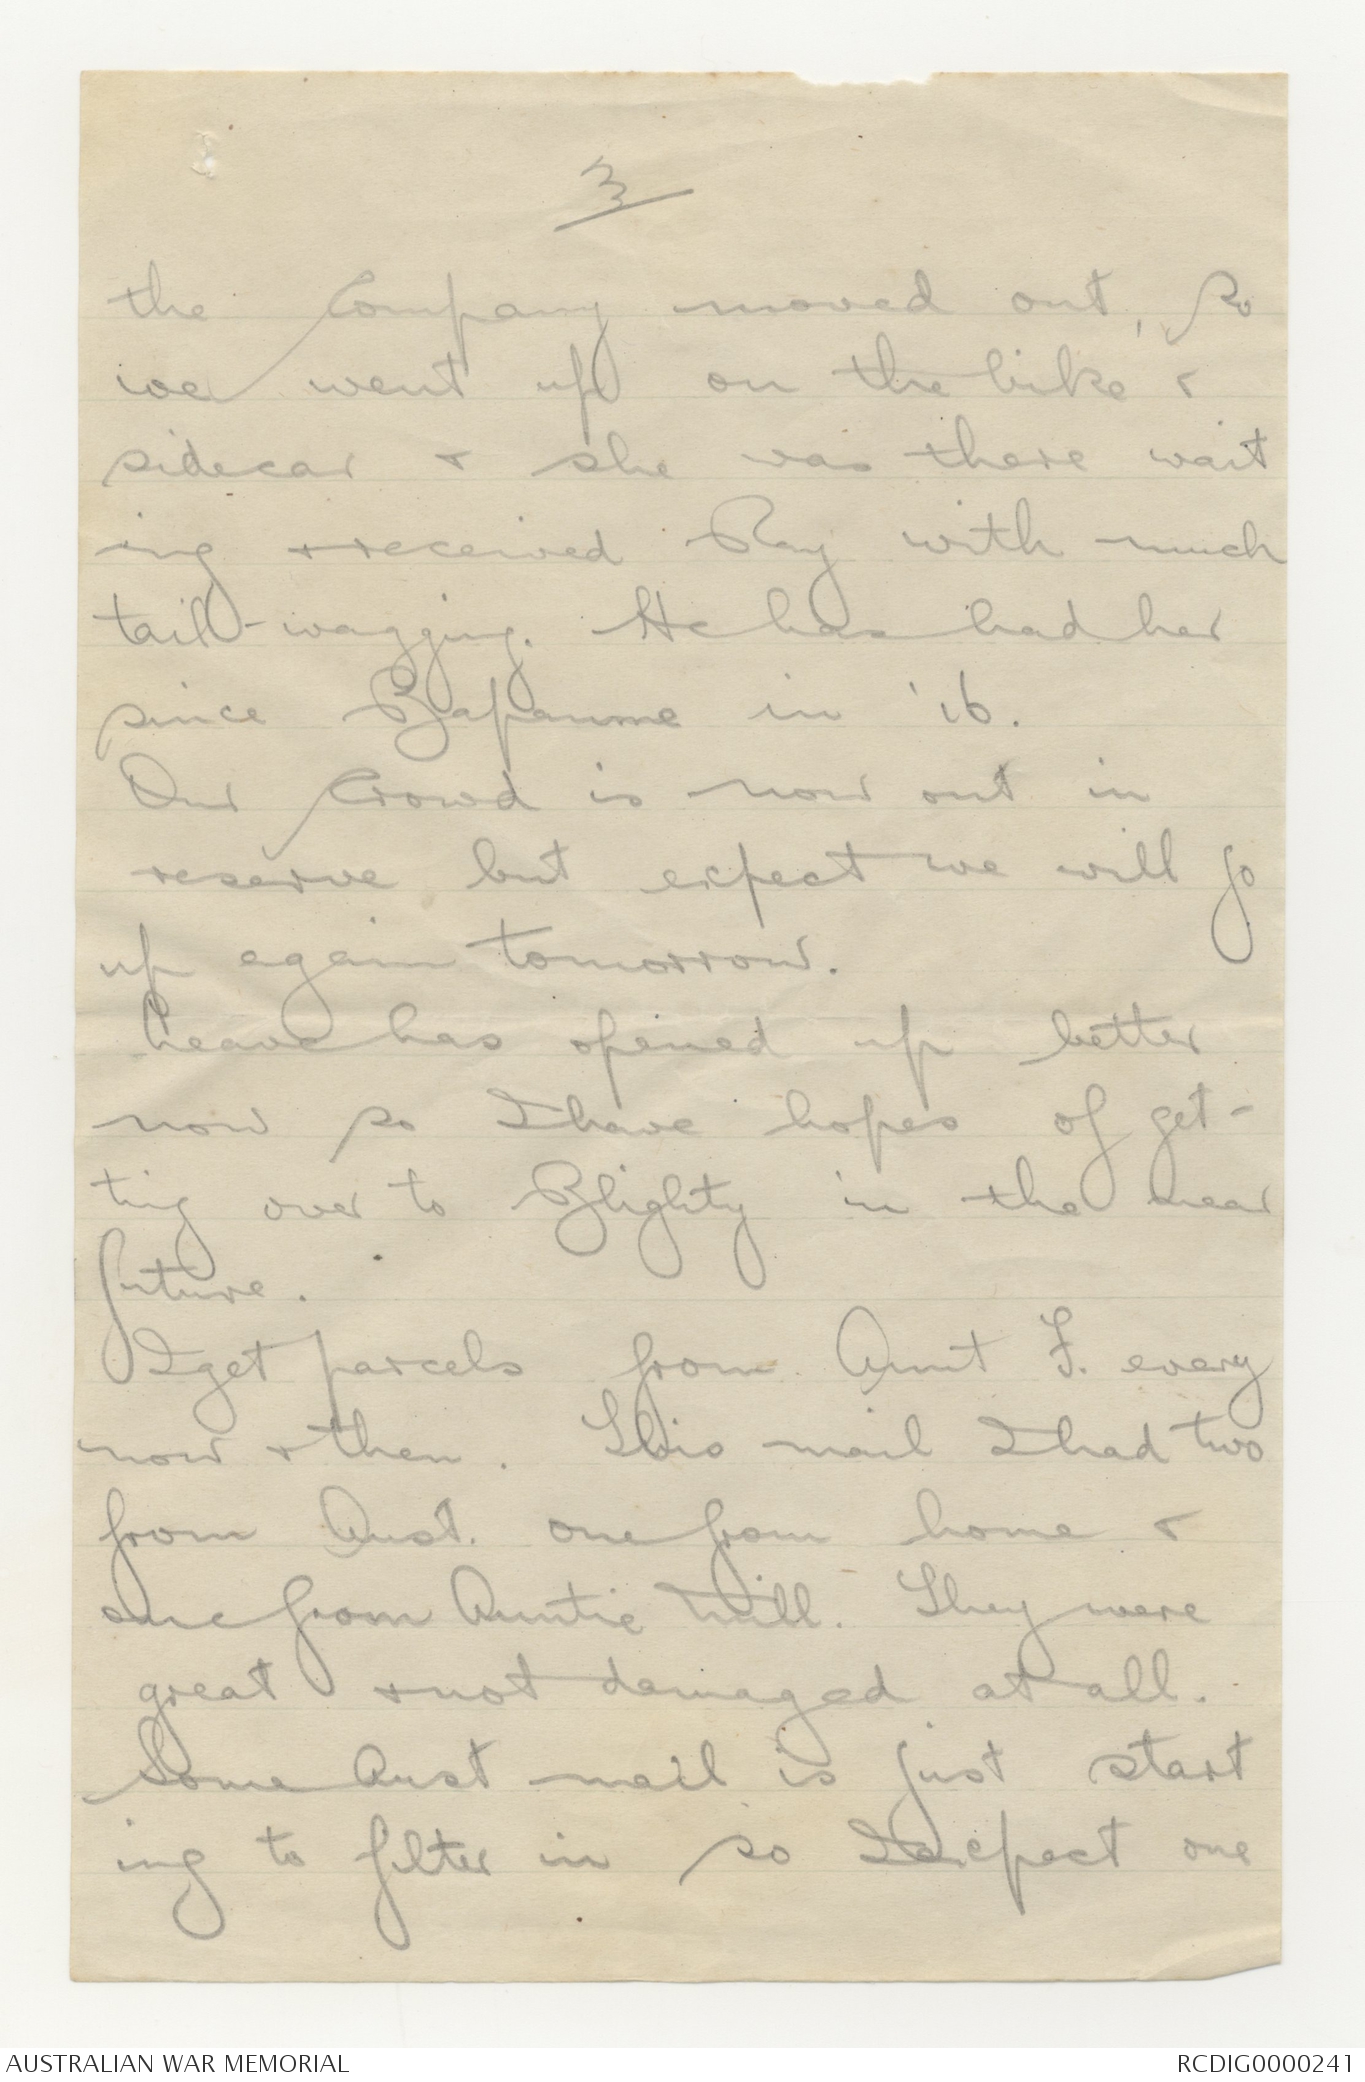 3
the Company moved out, so
we went up on the bike &
sidecar & she was there wait
ing & received Ray with much
tail-wagging. He has had her
since Bapaume in '16.
Our Crowd is now out in
reserve but expect we will go
up again tomorrow.
Leave has opened up better
now so I have hopes of get-
ting over to Blighty in the near
future.
I get parcels from Aunt F. every
now & then. This mail I had two
from Aust. one from home &
one from Auntie Mill. They were
great & not damaged at all.
Some Aust mail is just start
ing to filter in so I expect one
AUSTRALIAN WAR MEMORIAL
RCDIG0000241